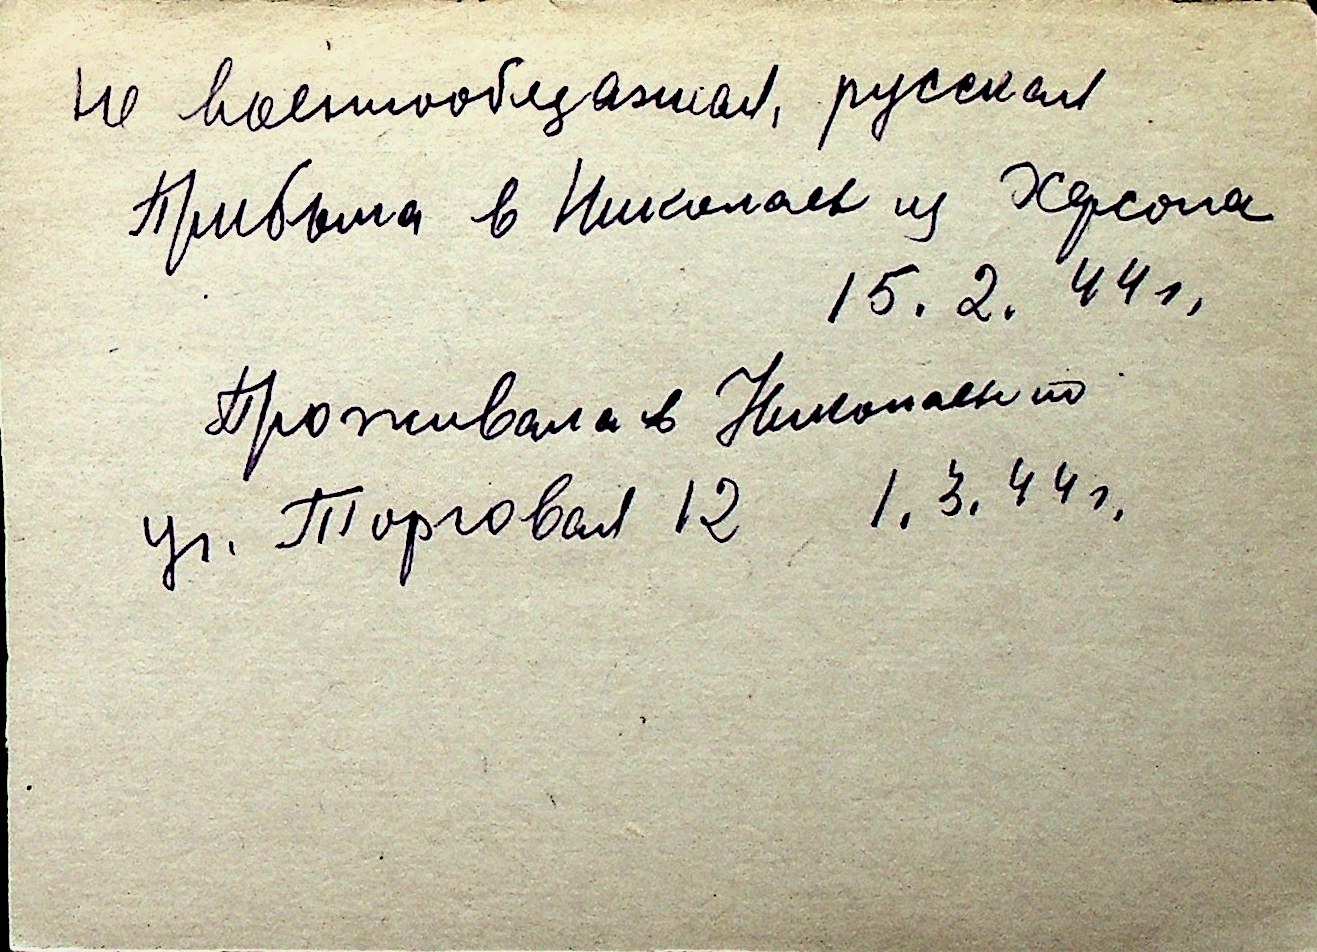 Не военнообязаная, русская
Прибыла в Николаев из Херсона
15.2.44г.
Проживала в Николаеве по
ул. Торговая 12 1.3.44г.